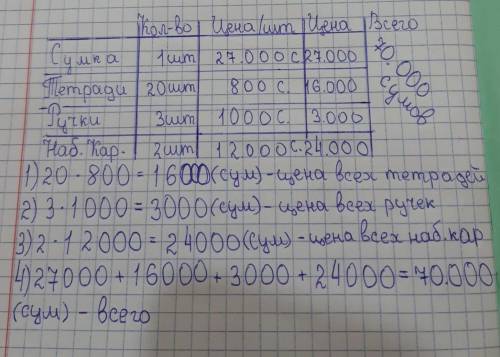 Кол-во Цена/шт Цена Всего
Сумка 1шт 27.000 с. 27.000 70.000 сумов
Тетради 20шт 800 с. 16.000
Ручки 3шт 1000 с. 3.000
Наб. Кар. 2шт 12000 с. 24.000
1) 20 · 800 = 16000 (сум) - цена всех тетрадей
2) 3 · 1000 = 3000 (сум) - цена всех ручек
3) 2 · 12000 = 24000 (сум) - цена всех наб. кар
4) 27000 + 16000 + 3000 + 24000 = 70.000
(сум) - всего